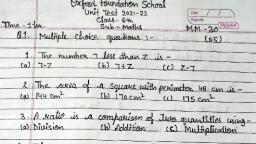 Oxford Foundation School
Unit Test 2021-22
Class - 6th
Time - 1 hr. Sub - Maths MM - 30
Q1. Multiple choice questions :- (05)
1. The number 7 less than z is -
(a) 7-z (b) 7+z (c) z-7
2. The area of a square with perimeter 48 cm is -
(a) 144 cm² (b) 170 cm² (c) 175 cm²
3. A ratio is a comparison of two quantities using -
(a) Division (b) Addition (c) Multiplication